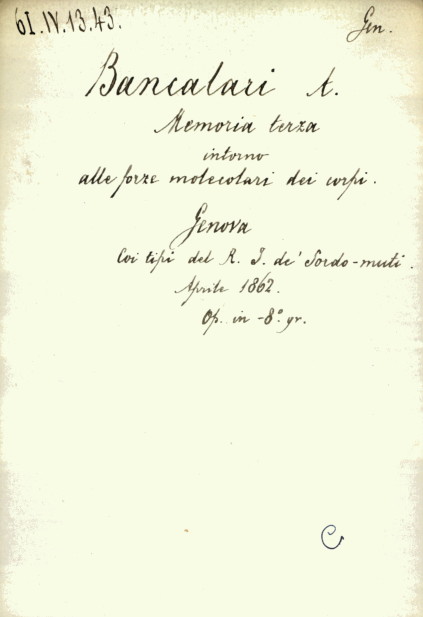 61.IV.13.43.
Gen.
Bancalari A.
Memoria terza
intorno
alle forze molecolari dei corpi.
Genova
Coi tipi del R. I. de' Sordo-muti.
Aprile 1862.
Op. in -8º gr.
C